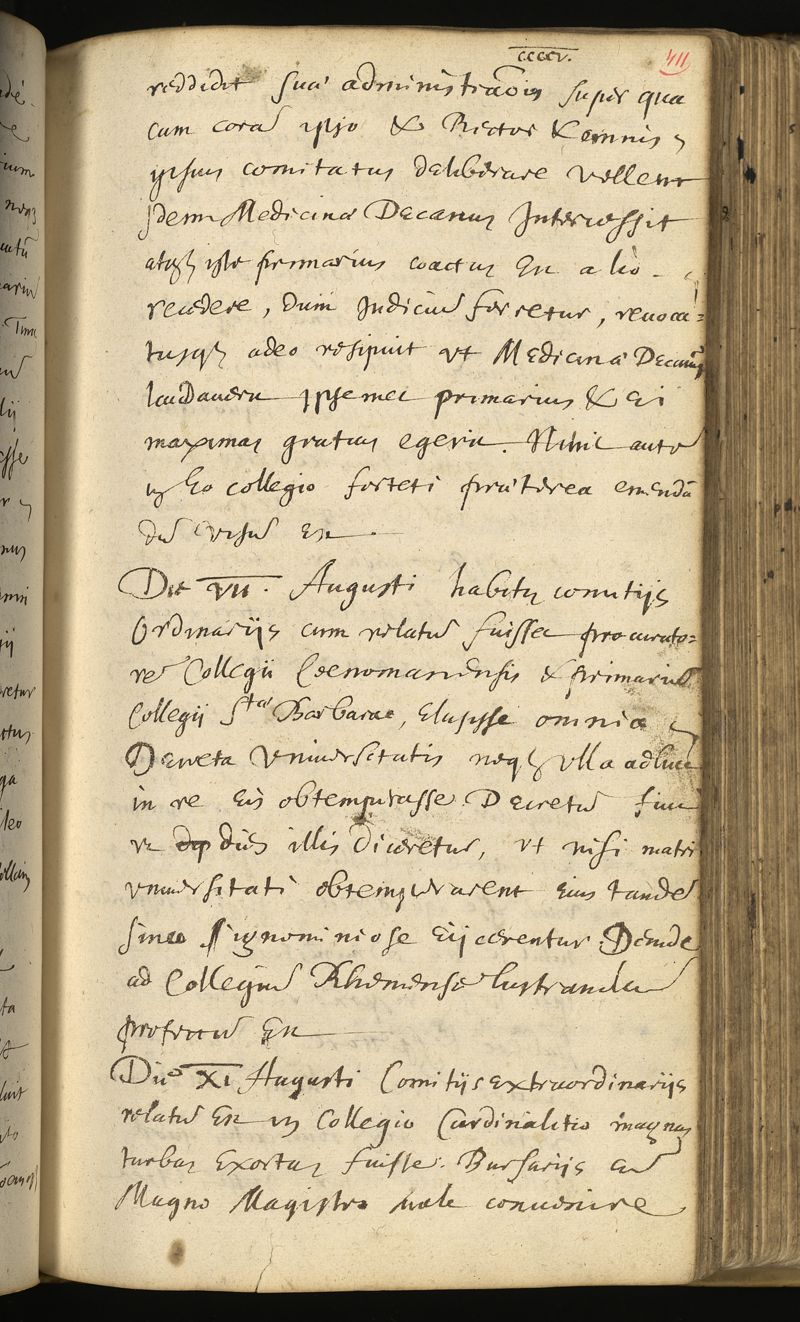 ccccv. 411
reddidit suā administrac͞ois super qua
cum corā ipso & Rector & omnis
ipsius comitatus deliberare vellent
Idem Medicinæ Decanus Intercessit
atqȝ iste primarius coactus est alio
recedere, dum Judiciū ferretur, reuoca=
tusqȝ adeo resipuit vt Medicinæ Decanū
laudauerit ipsemet primarius & Ei
maximas gratias egerit. Nihil autē
in Eo collegio forteti præterea emendā
dū visū Est.
Die VII. Augusti habitis comitijs
Ordinarijs cum relatū fuisset procurato=
rē Collegii Coenomanensis & primariū
Collegii Stæ Barbarae, Elusisse omnia
Decreta Vniuersitatis neqȝ vlla adhuc
in re Eis obtemperasse Decretū fuit
vt dies illis diceretur, vt nisi matri
vniuersitati obtemperarent Eius tandē
sinu ignominiose Eijcerentur. Deinde
ad Collegiū Rhemense lustrandū
profectū Est
Die XI Augusti Comitijs extraordinarijs
relatū Est in Collegio Cardinalitio magnas
turbas Exortas fuisse. Bursarijs cū
Magno Magistro male conuenire